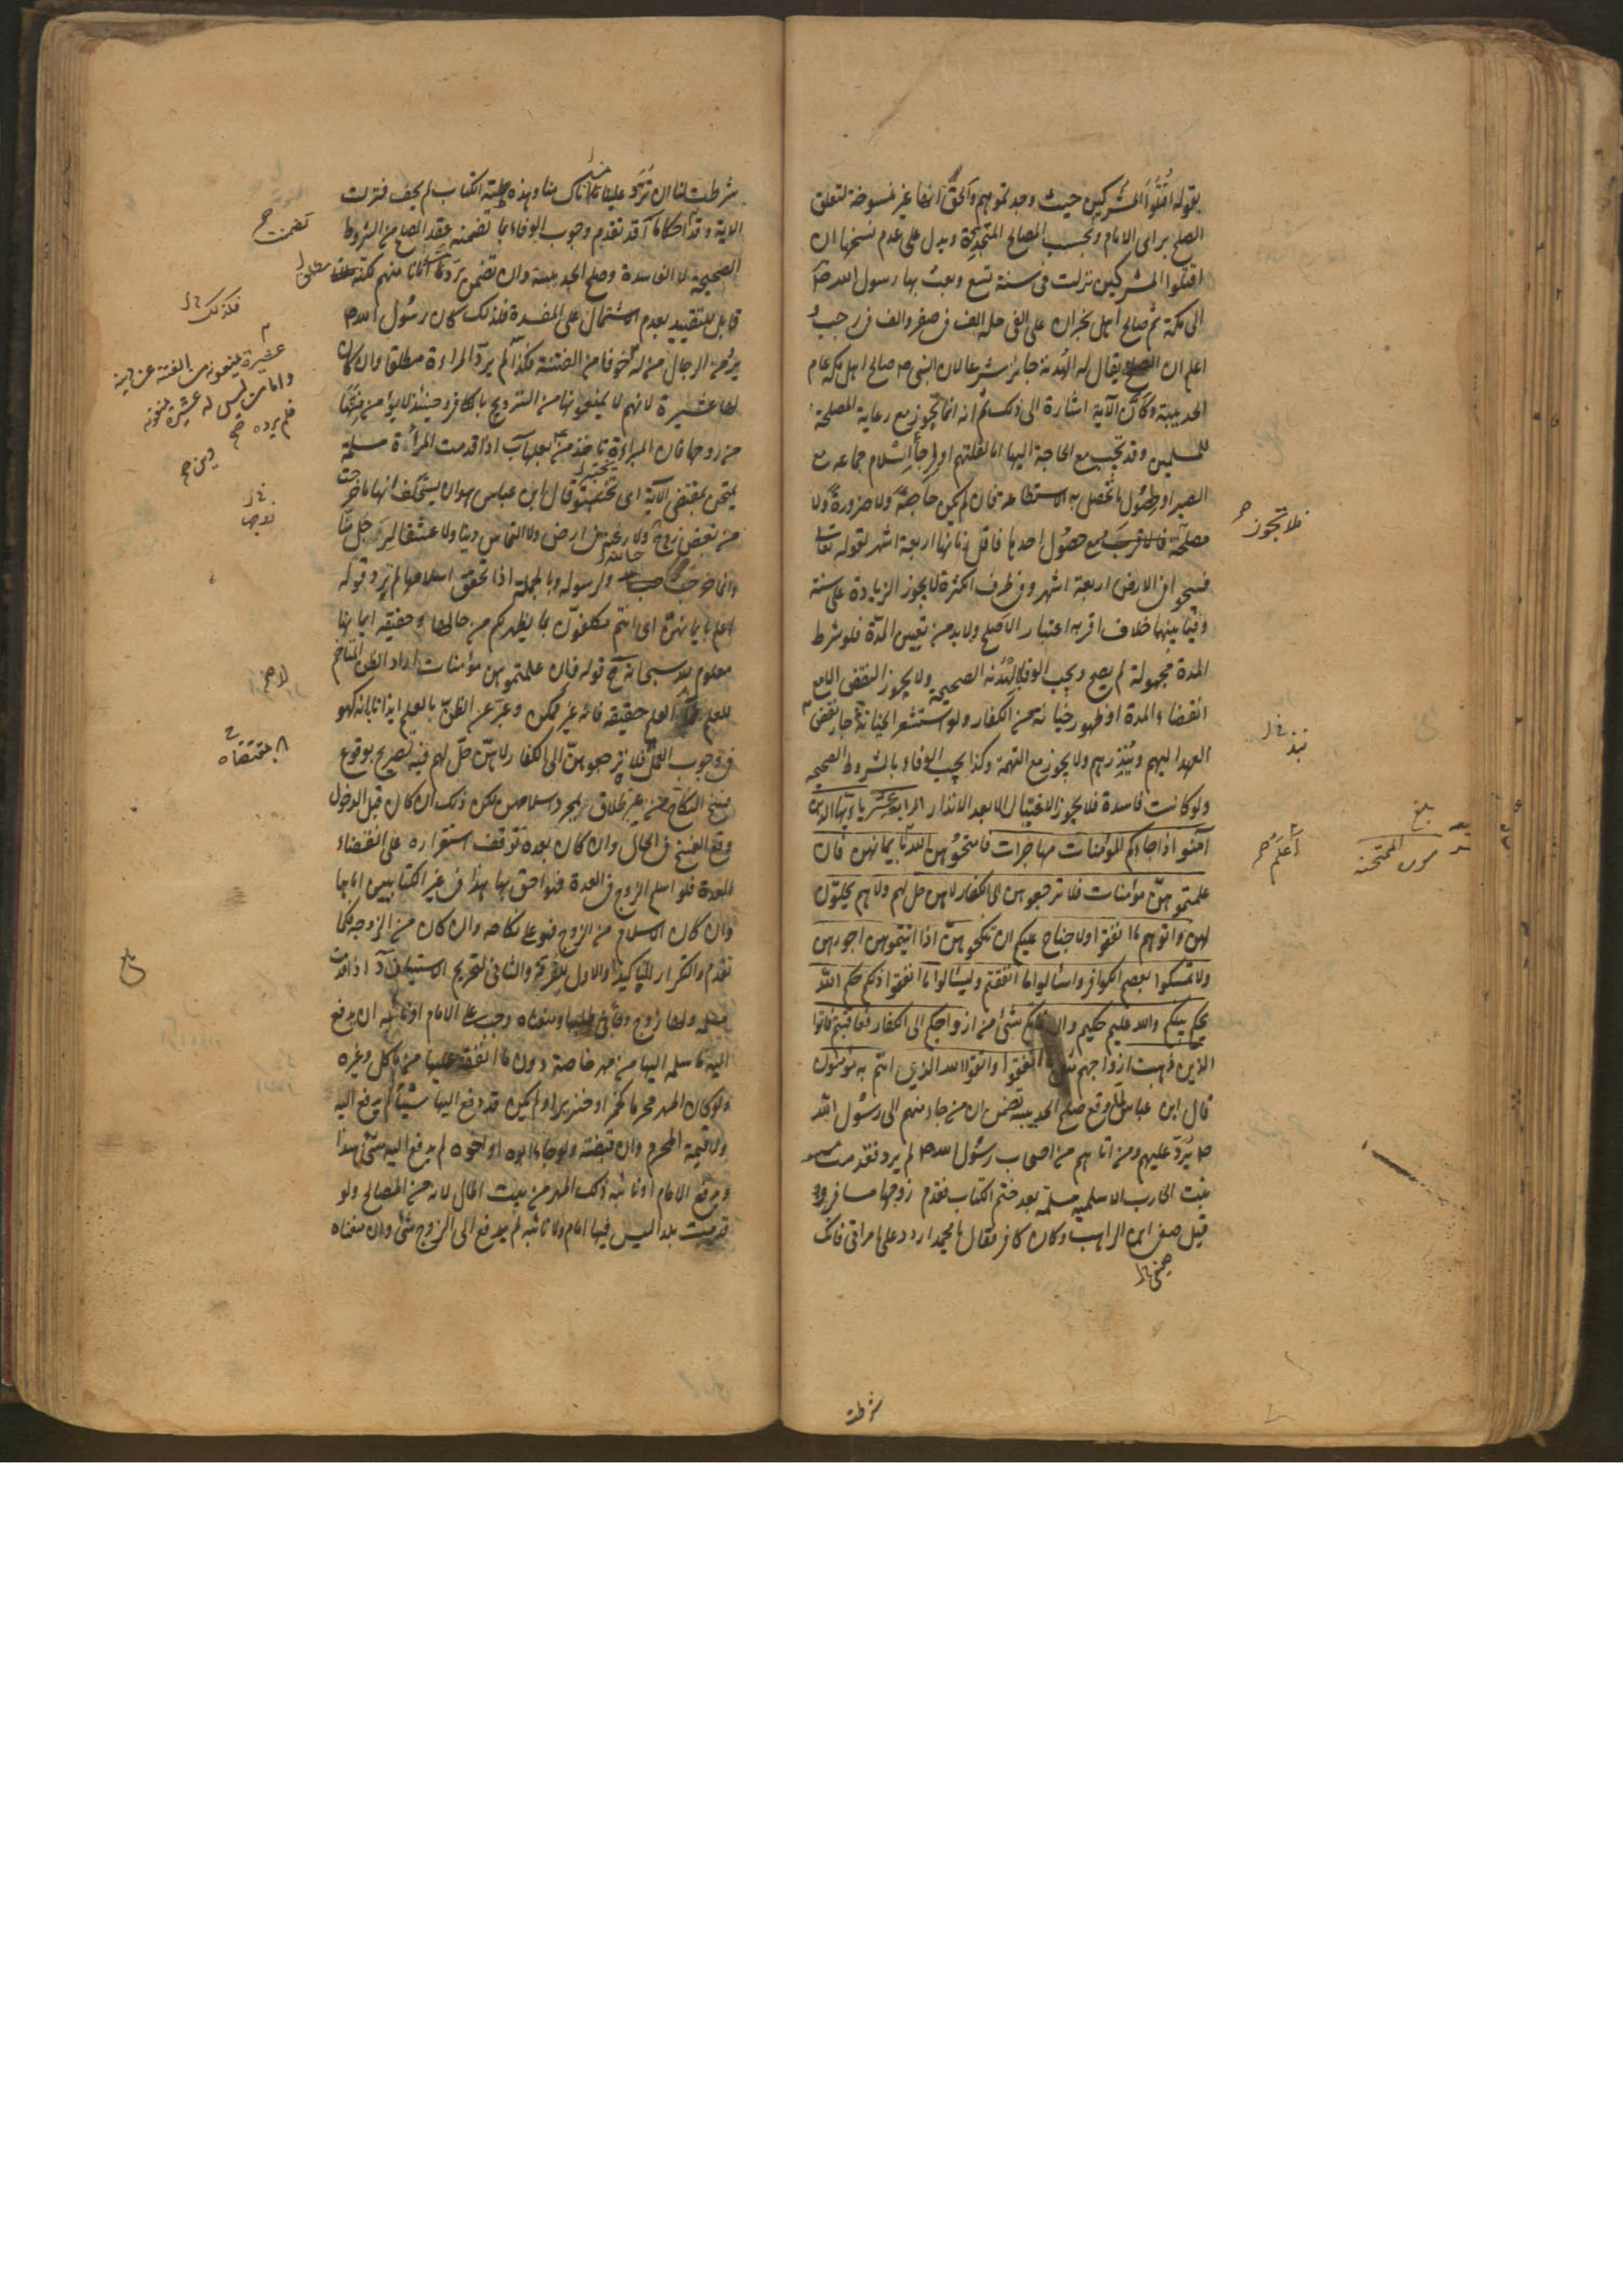 بقوله اقتلوا المشركين حيث وجدتموهم والحق انها غير منسوخة لتعلق
الصلح براى الامام وبحسب المصالح المتجددة ويدل على عدم نسخها ان
اقتلوا المشركين نزلت فى سنة تسع وبعث بها رسول الله ص
الى مكة ثم صالح اهل نجران على الفى حلة الف فى صفر والف فى رجب و
اعلم ان الصلح يقال له الهدنة جائز شرعا لان النبى ص صالح اهل مكة عام
الحديبية وكان الآية اشارة الى ذلك ثم انه انما يجوز مع رعاية المصلحة
للمسلمين وقد تجب مع الحاجة اليها اما لقلتهم او لرجاء اسلام جماعة مع
الصبر او حصول ما تحصل به الاستطاعة فان لم يكن حاجة ولا ضرورة ولا
مصلحة فلا تجوز مع حصول احدها فاقل زمانها اربعة اشهر لقوله تعالى
فسيحوا فى الارض اربعة اشهر وفى طرف الكثرة لا يجوز الزيادة على سنة
وفيما بينهما خلاف اقربه اعتبار الاصلح ولا بد من تعيين المدة فلو شرط
المدة مجهولة لم يصح ويجب الوفاء بالهدنة الصحيحة ولا يجوز النقض الا مع
انقضاء المدة او ظهور خيانة من الكفار ولو استشعر الخيانة جاز نقض
العهد اليهم وينذرهم ولا يجوز مع التهمة وكذا يجب الوفاء بالشروط الصحيحة
ولو كانت فاسدة فلا يجوز الاغتيال الا بعد الانذار الرابعة عشر يا ايها الذين
آمنوا اذا جاءكم المؤمنات مهاجرات فامتحنوهن الله اعلم بايمانهن فان
علمتموهن مؤمنات فلا ترجعوهن الى الكفار لا هن حل لهم ولا هم يحلون
لهن واتوهم ما انفقوا ولا جناح عليكم ان تنكحوهن اذا آتيتموهن اجورهن
ولا تمسكوا بعصم الكوافر واسألوا ما انفقتم وليسألوا ما انفقوا ذلكم حكم الله
يحكم بينكم والله عليم حكيم وان فاتكم شئ من ازواجكم الى الكفار فعاقبتم فاتوا
الذين ذهبت ازواجهم مثل ما انفقوا واتقوا الله الذى انتم به مؤمنون
قال ابن عباس لما وقع صلح الحديبية تضمن ان من جاء منهم الى رسول الله
ص يرد عليهم ومن اتاهم من اصحاب رسول الله ص لم يرد فقدمت
بنت الحارث الاسلمية مسلمة بعد ختم الكتاب فقدم زوجها مسافر و
قيل صيفى ابن الراهب وكان كافرا فقال يا محمد اردد على امراتى فانك
صيفى
شرطت
فلا تجوز
نبذ
اعلم
بلغ
سورة الممتحنة
شرطت لنا ان ترد علينا من اتاك منا وهذه طينة الكتاب لم تجف فنزلت
الاية وقد تقدم وجوب الوفاء بما تضمنه عقد الصلح من الشروط
الصحيحة لا الفاسدة وصلح الحديبية وان تضمن رد من اتانا منهم لكنه مطلق
قابل للتقييد بعدم الاشتمال على المفسدة فلذلك كان رسول الله ص
يرد من الرجال من له خوفا من الفتنة فكذا لم يرد المراة مطلقا وان كان
لها عشيرة لانهم لا يمنعونها من التزويج بالكافر وحينئذ لا يؤمن فتنتها
من زوجها فان المراة تاخذ من بعلها آ اذا قدمت المرأة مسلمة
يمتحن بمقتضى الآية اى تختبر وقال ابن عباس هو ان يستحلف انها ما خرجت
من بغض زوج ولا رغبة عن ارض ولا التماس دنيا ولا عشقا لرجل منا
وانما خرجت حبا لله ولرسوله وبالجملة اذا تحقق اسلامها لم ترد قوله
اعلم بايمانهن اى انتم مكلفون بما يظهر لكم من حالها وحقيقة ايمانها
معلوم لله سبحانه قوله فان علمتموهن مؤمنات اراد الظن المتاخم
للعلم لا العلم حقيقة فانه غير ممكن وعبر عن الظن بالعلم ايذانا بانه كهو
فى وجوب العمل فلا ترجعوهن الى الكفار لا هن حل لهم فيه تصريح بوقوع
فسخ النكاح من غير طلاق بل بمجرد اسلامهن لكن ذلك ان كان قبل الدخول
وقع الفسخ فى الحال وان كان بعده توقف استقراره على انقضاء
العدة فلو اسلم الزوج فى العدة فهو احق بها هذا فى غير الكتابيين اما هما
وان كان الاسلام من الزوج فهو على نكاحه وان كان من الزوجة فكما
تقدم والتكرار للتاكيد او الاول للفرقة والثانى لتحريم الاستيناف اذا قدمت
مسلمة ولها زوج وجاء فى طلبها ومنعناه وجب على الامام او نائبه ان يدفع
اليه ما سلمه اليها من مهر خاصة دون ما انفقه عليها من ماكل وغيره
ولو كان المهر محرما كخمر او خنزير او لم يكن قد دفع اليها شيئا لم يدفع اليه
ولا قيمة المحرم وان قبضته ولو جاء ابوه او اخوه لم يدفع اليه شئ هذا
ويدفع الامام او نائبه ذلك المهر من بيت المال لانه من المصالح ولو
قدمت بلدا ليس فيها امام ولا نائبه لم يدفع الى الزوج شئ وان منعناه
تضمنت
فكذلك
عشيرة يمنعونه من الفتنة عن دينه
واما من ليس له عشيرة يمنعونه
فلم يرده
بمقتضاه